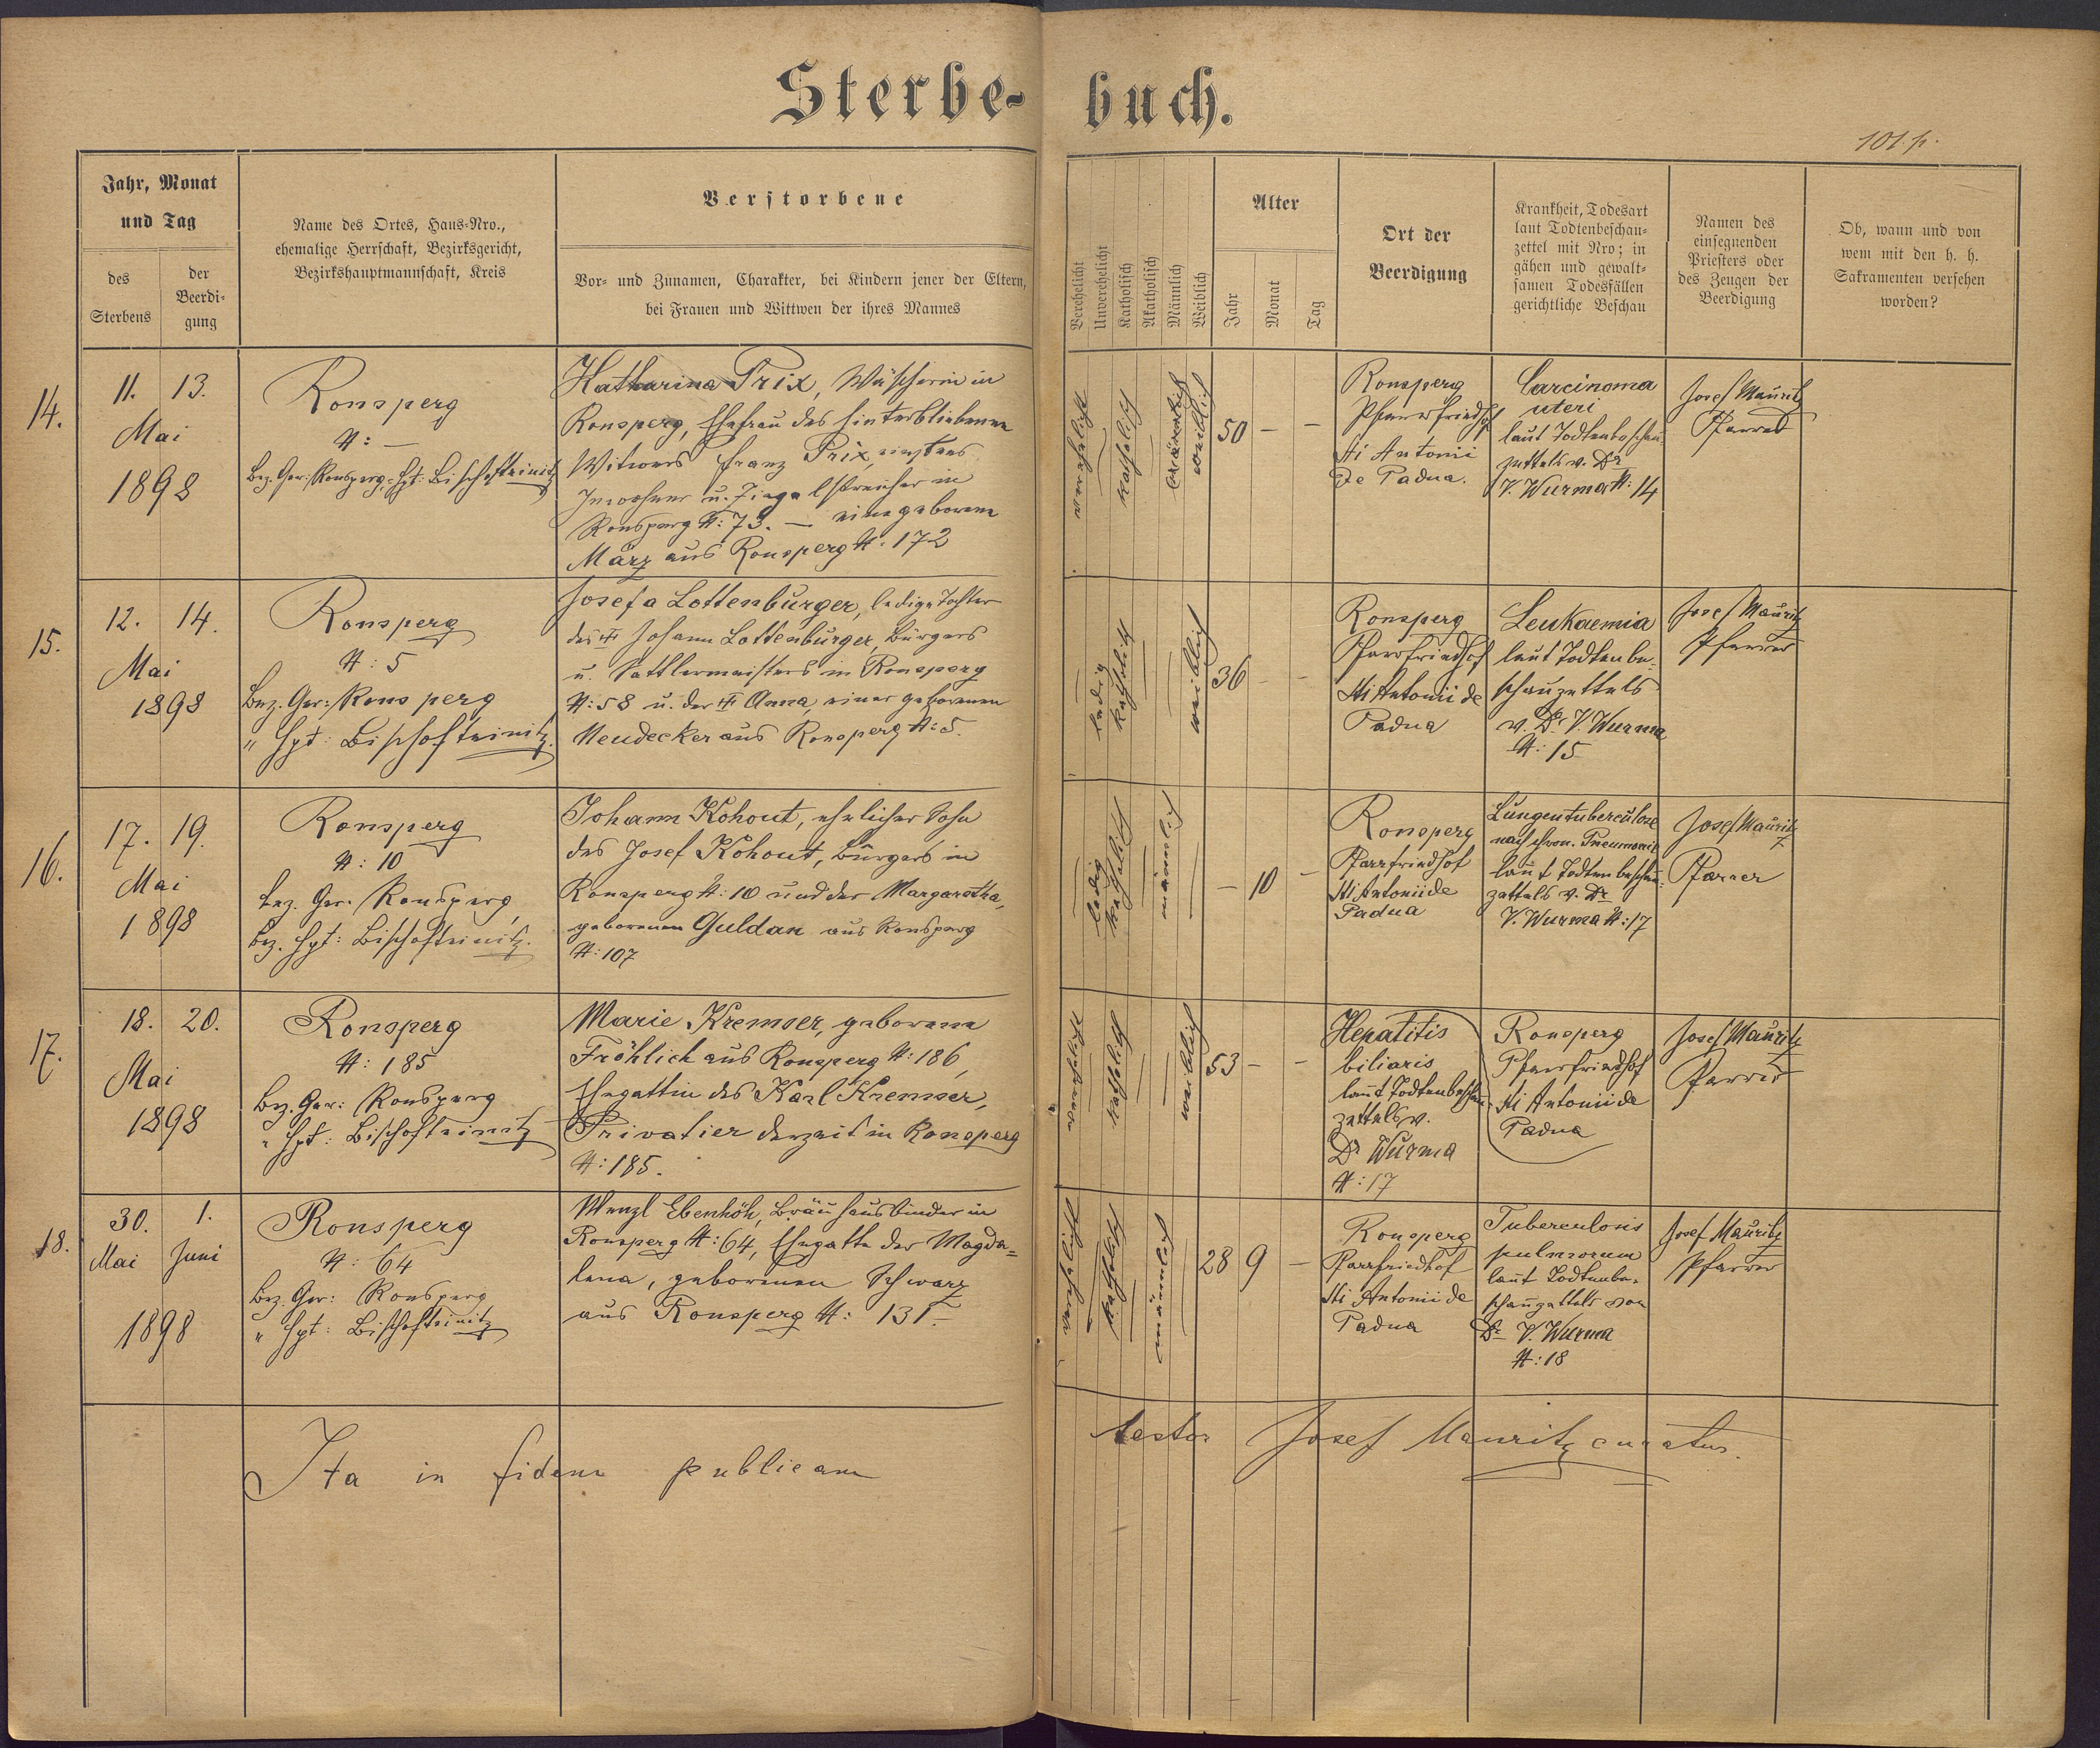 Sterbe-buch.
101 p.
Jahr, Monat
und Tag
des
Sterbens
der
Beerdi-
gung
Name des Ortes, Haus-Nro.,
ehemalige Herrschaft, Bezirksgericht,
Bezirkshauptmannschaft, Kreis
Verstorbene
Vor- und Zunamen, Charakter, bei Kindern jener der Eltern,
bei Frauen und Wittwen der ihres Mannes
Verehelicht
Unverehelicht
Katholisch
Akatholisch
Männlich
Weiblich
Alter
Jahr
Monat
Tag
Ort der
Beerdigung
Krankheit, Todesart
laut Todtenbeschau-
zettel mit Nro; in
gähen und gewalt-
samen Todesfällen
gerichtliche Beschau
Namen des
einsegnenden
Priesters oder
des Zeugen der
Beerdigung
Ob, wann und von
wem mit den h. h.
Sakramenten versehen
worden?
14.
11. 13.
Mai
1898
Ronsperg
N: —
Bez. Ger: Ronsperg, Hpt: Bischofteinitz
Katharina Prix, Wäscherin in
Ronsperg, Ehefrau des hinterbliebenen
Witwers Franz Prix,
Inwohner u. Ziegelstreicher in
Ronsperg N: 73. — eine geborene
März aus Ronsperg N: 172
katholisch
männlich
weiblich
50 — —
Ronsperg
Pfarrfriedhof
Sti Antonii
de Padua.
Carcinoma
uteri
laut Todtenbeschau-
zettels v. Dr
V. Wurma N: 14
Josef Mauritz
Pfarrer
15.
12. 14.
Mai
1898
Ronsperg
N: 5
Bez. Ger: Ronsperg
" Hpt: Bischofteinitz.
Josefa Lottenburger, ledige Tochter
des Johann Lottenburger, Bürgers
u. Sattlermeisters in Ronsperg
N: 58 u. der Anna, einer geborenen
Neudecker aus Ronsperg N: 5.
ledig
katholisch
weiblich
36 — —
Ronsperg
Pfarrfriedhof
Sti Antonii de
Padua
Leukaemia
laut Todtenbe-
schauzettels
v. Dr V. Wurma
N: 15
Josef Mauritz
Pfarrer
16.
17. 19.
Mai
1898
Ronsperg
N: 10
Bez. Ger: Ronsperg,
Bez. Hpt: Bischofteinitz.
Johann Kohout, ehelicher Sohn
des Josef Kohout, Bürgers in
Ronsperg N: 10 und der Margaretha,
geborenen Guldan aus Ronsperg
N: 107
ledig
katholisch
männlich
— 10 —
Ronsperg
Pfarrfriedhof
Sti Antonii de
Padua
Lungentuberculose
nach chron. Pneumonie
laut Todtenbeschau-
zettels v. Dr
V. Wurma N: 17
Josef Mauritz
Pfarrer
17.
18. 20.
Mai
1898
Ronsperg
N: 185
Bez. Ger: Ronsperg
" Hpt: Bischofteinitz
Marie Kremser, geborene
Fröhlich aus Ronsperg N: 186,
Ehegattin des Karl Kremser,
Privatier derzeit in Ronsperg
N: 185.
katholisch
weiblich
53 — —
Hepatitis
biliaris
laut Todtenbeschau-
zettels v.
Dr Wurma
N: 17
Ronsperg
Pfarrfriedhof
Sti Antonii de
Padua
Josef Mauritz
Pfarrer
18.
30. 1.
Mai Juni
1898
Ronsperg
N: 64
Bez. Ger: Ronsperg
" Hpt: Bischofteinitz
Wenzl Ebenhöh, Bräuhausbinder in
Ronsperg N: 64, Ehegatte der Magda-
lena, geborenen Schwarz
aus Ronsperg N: 131.
katholisch
männlich
28 9 —
Ronsperg
Pfarrfriedhof
Sti Antonii de
Padua
Tuberculosis
pulmonum
laut Todtenbe-
schauzettels von
Dr V. Wurma
N: 18
Josef Mauritz
Pfarrer
Ita in fidem publicam testor Josef Mauritz curatus.